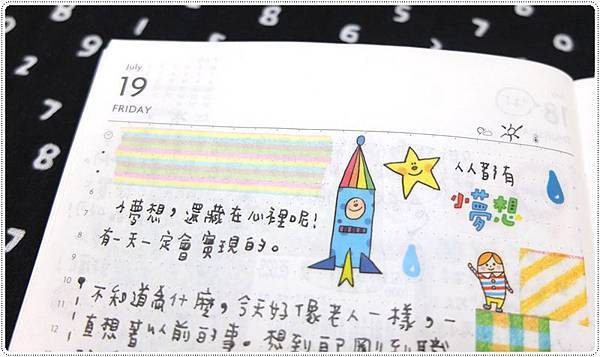 July
19
FRIDAY
人人都有
小夢想
6
7
8
9
10
11
12
小夢想，還藏在心裡呢！
有一天一定會實現的。
不知道為什麼，今天好像老人一樣，一
直想著以前的事。想到自己剛到職